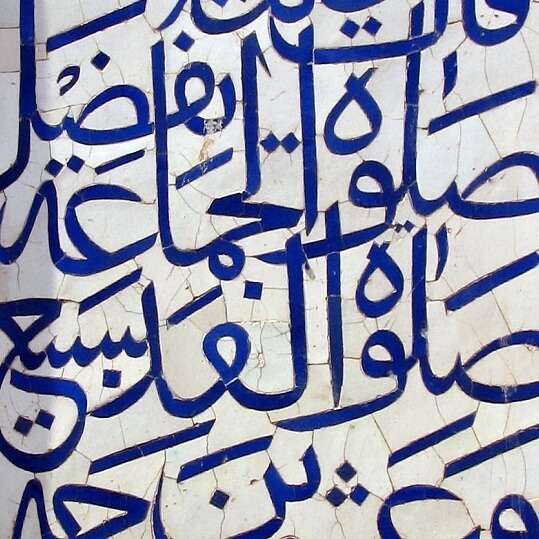 صلوة الجماعة تفضل
صلوة الفذ بسبع
وعشرين